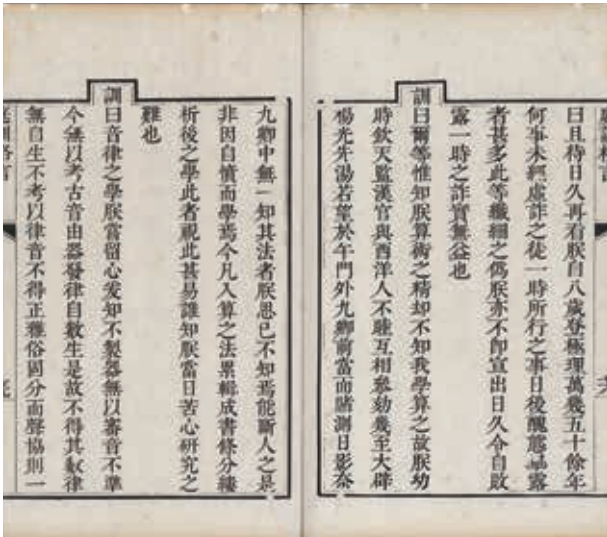 曰且待日久再看朕自八歲登極理萬幾五十餘年
何事未經虛詐之徒一時所行之事日後醜態畢露
者甚多此等纖細之偽朕亦不即宣出日久令自敗
露一時之詐實無益也
訓曰爾等惟知朕算術之精却不知我學算之故朕幼
時欽天監漢官與西洋人不睦互相參劾幾至大辟
楊光先湯若望於午門外九卿前當面賭測日影奈
九卿中無一知其法者朕思己不知焉能斷人之是
非因自憤而學焉今凡入算之法累輯成書條分縷
析後之學此者視此甚易誰知朕當日苦心研究之
難也
訓曰音律之學朕嘗留心爰知不製器無以審音不準
今無以考古音由器發律自數生是故不得其數律
無自生不考以律音不得正雅俗固分而聲協則一
庭訓格言